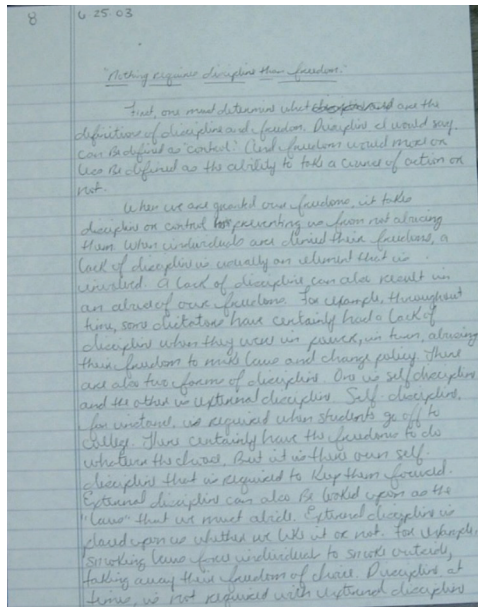 8
6 25 03
"Nothing requires discipline than freedom."
First, one must determine what are the
definitions of discipline and freedom. Discipline I would say
can Be defined as "control." And freedom would more or
less Be defined as the ability to take a course of action or
not.
When we are granted our freedoms, it takes
discipline or control preventing us from not abusing
them. When individuals are denied their freedoms, a
lack of discipline is usually an element that is
involved. A lack of discipline can also result in
an abuse of our freedoms. For example, throughout
time, some dictators have certainly had a lack of
discipline when they were in power, in turn, abusing
their freedom to make laws and change policy. There
are also two forms of discipline. One is self discipline
and the other is external discipline. Self-discipline,
for instance, is required when students go off to
college. There certainly have the freedoms to do
whatever the choose, But it is there own self
discipline that is required to Keep them focused.
External discipline can also Be looked upon as the
"laws" that we must abide. External discipline is
placed upon us whether we like it or not. For example,
smoking laws force individual to smoke outside,
taking away their freedom of choice. Discipline, at
times, is not required with external discipline